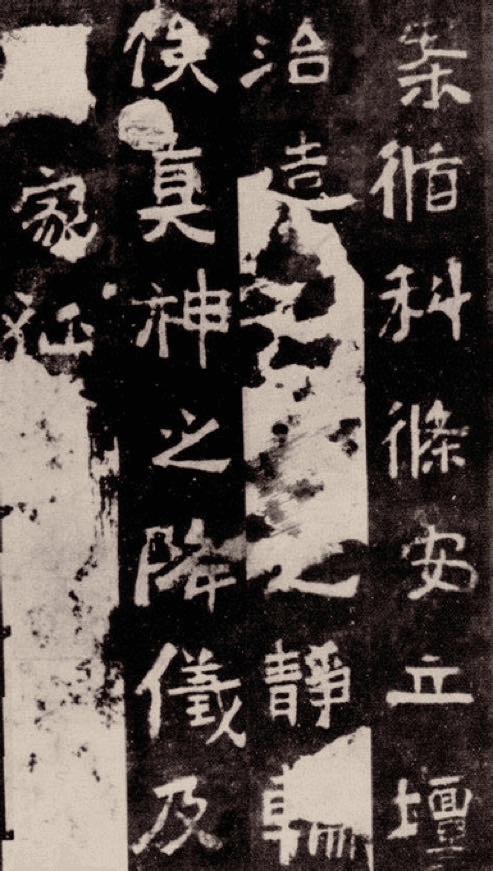 案循科條安立壇
治造之靜輪
俟真神之降儀及
家征